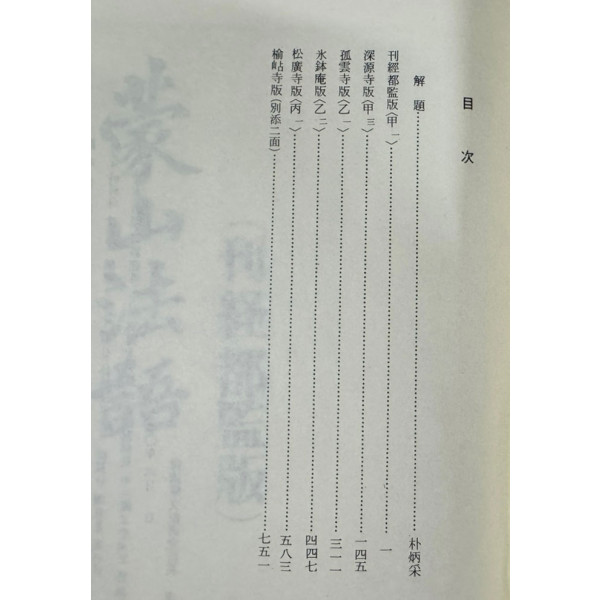 目次
解題……朴炳采
刊經都監版〈甲一〉……一
深源寺版〈甲三〉……一四五
孤雲寺版〈乙一〉……三一一
氷鉢庵版〈乙二〉……四四七
松廣寺版〈丙一〉……五八三
楡岾寺版〈別添二面〉……七五一
蒙山法語
(刊經都監版)